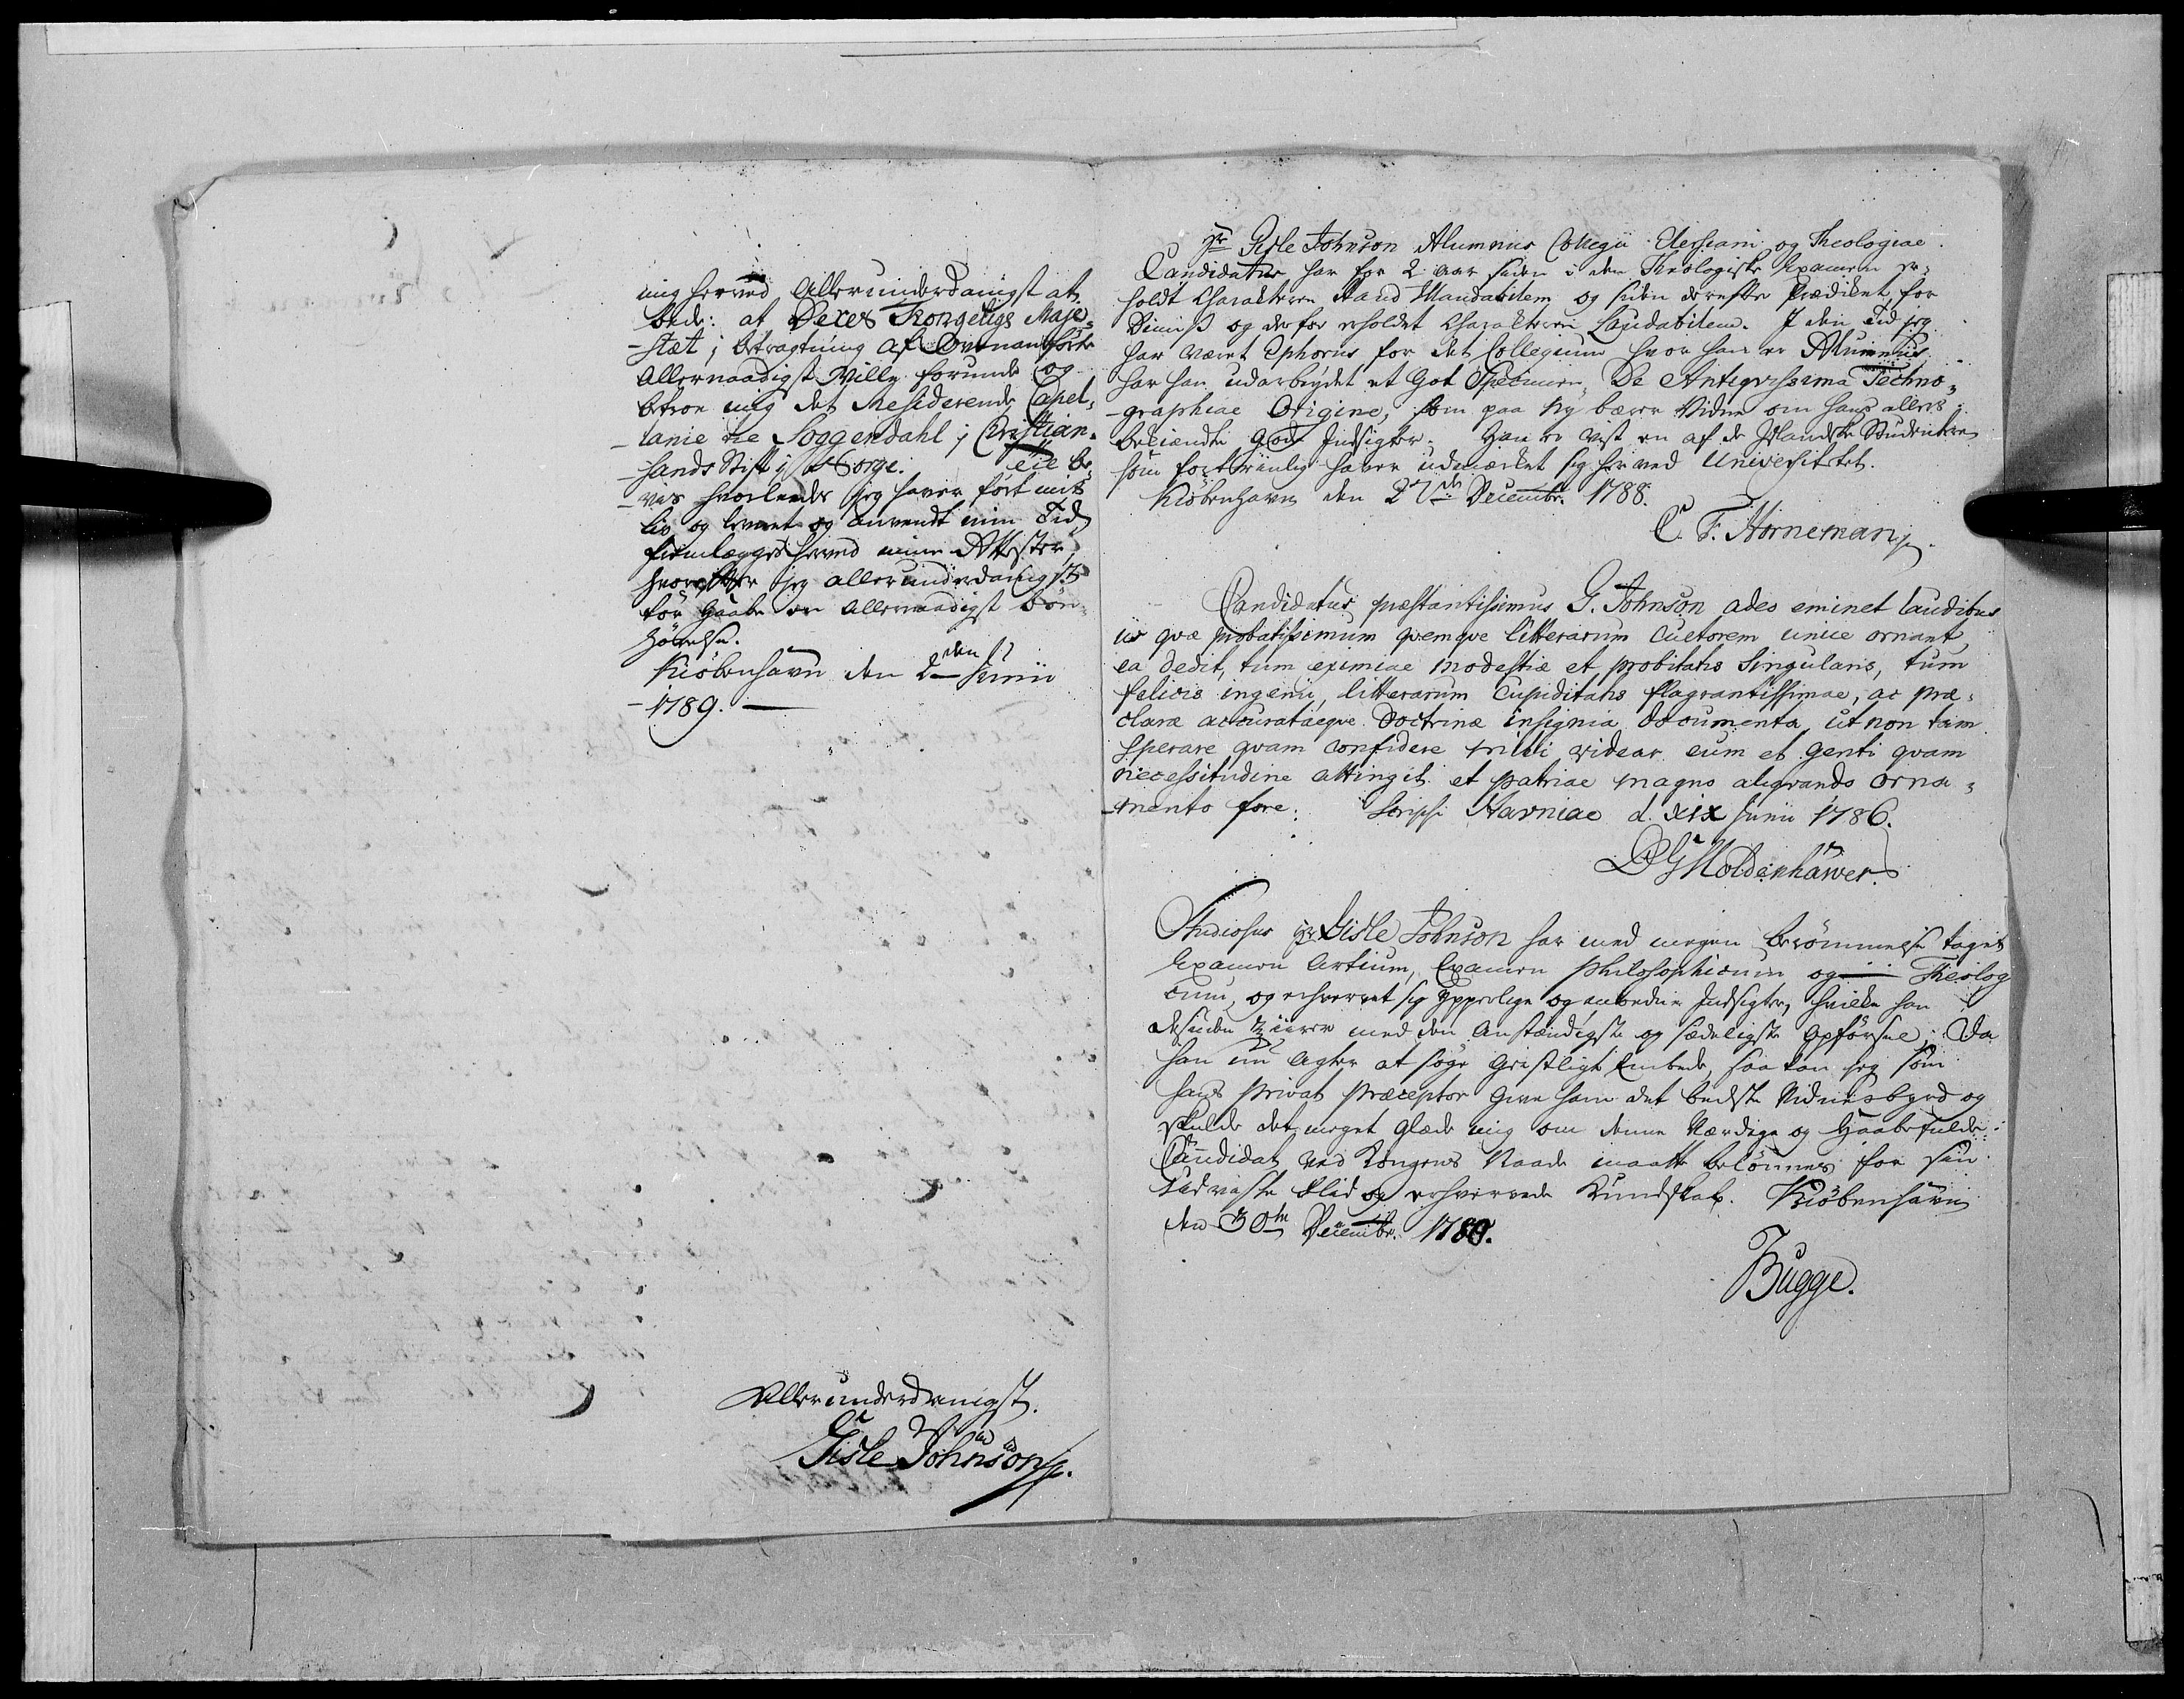 mig herved Allerunderdanigst at
bede: at Deres Kongelige Maje-
-stæt i betragtning af Ovenanførte
Allernaadigst Wille forunde og
betroe mig det Residerende Capel-
-lanie til Soggendahl i Christian-
-sands Stift i Norge. Til be-
-viis hvorledes jeg haver ført mit
Liv og levnet og anvendt min Tid
fremlægges herved mine Attester,
hvorefter jeg allerunderdanigst
tør haabe en Allernaadigst bøn-
hørelse.
Kiøbenhavn den 2den Junii
-1789. -
Allerunderdanigst.
Gisle Johnson
Hr Gisle Johnson Alumnus Collegii Elersiani og Theologiae
Candidatus har for 2 aar siden i den Theologiske Examen er-
holdt Charakteren Haud Illaudabilem og siden derefter Prædiket for
Dimiss og derfor erholdet Charakteren Laudabilem. I den Tid jeg
har været Ephorus for det Collegium hvor han er Alumnus
har han udarbeydet et Got Specimen, De Antiqvissima Techno-
-graphiae Origine, som paa Ny bærer Vidne om hans allers
bekiendte gode Indsigter. Han er vist en af de Islandske Studentere
som fortrinlig haver udmærket sig her ved Universitetet.
Kiøbenhavn den 27de Decembr. 1788.
C. F. Horneman
Candidatus præstantissimus G. Johnson adeo eminet laudibus
iis qvæ probatissimum qvemqve litterarum Cultorem unice ornant,
ea dedit, tum eximiae modestiæ et probitatis Singularis, tum
felicis ingenii, litterarum Cupiditatis flagrantissimae, ac præ-
claræ accuratæqve Doctrinæ insignia documenta, ut non tam
Sperare qvam confidere mihi videar eum et genti qvam
necessitudine attingit et patriae magno aliqvando orna-
-mento fore. Scripsi Havniae d. XIX Junii 1786.
D G Moldenhawer.
Studiosus Hr Gisle Johnson har med megen berømmelse taget
Examen Artium, Examen Philosophicum og Theolog
cum, og erhvervet sig Ypperlige og anvendte Indsigter, hvilke han
desuden ziirer med den Anstændigste og sædeligste Opførsel. Da
han nu agter at søge Geistligt Embede, saa kan jeg som
hans privat Præceptor give ham det beedste Vidnesbyrd og
skulde det meget glæde mig om denne Værdige og Haabefulde
Candidat ved Kongens Naade maatte belønnes for sin
udviste Flid og erhvervede Kundskab. Kiøbenhavn
den 30te Decembr. 1780.
Bugge.